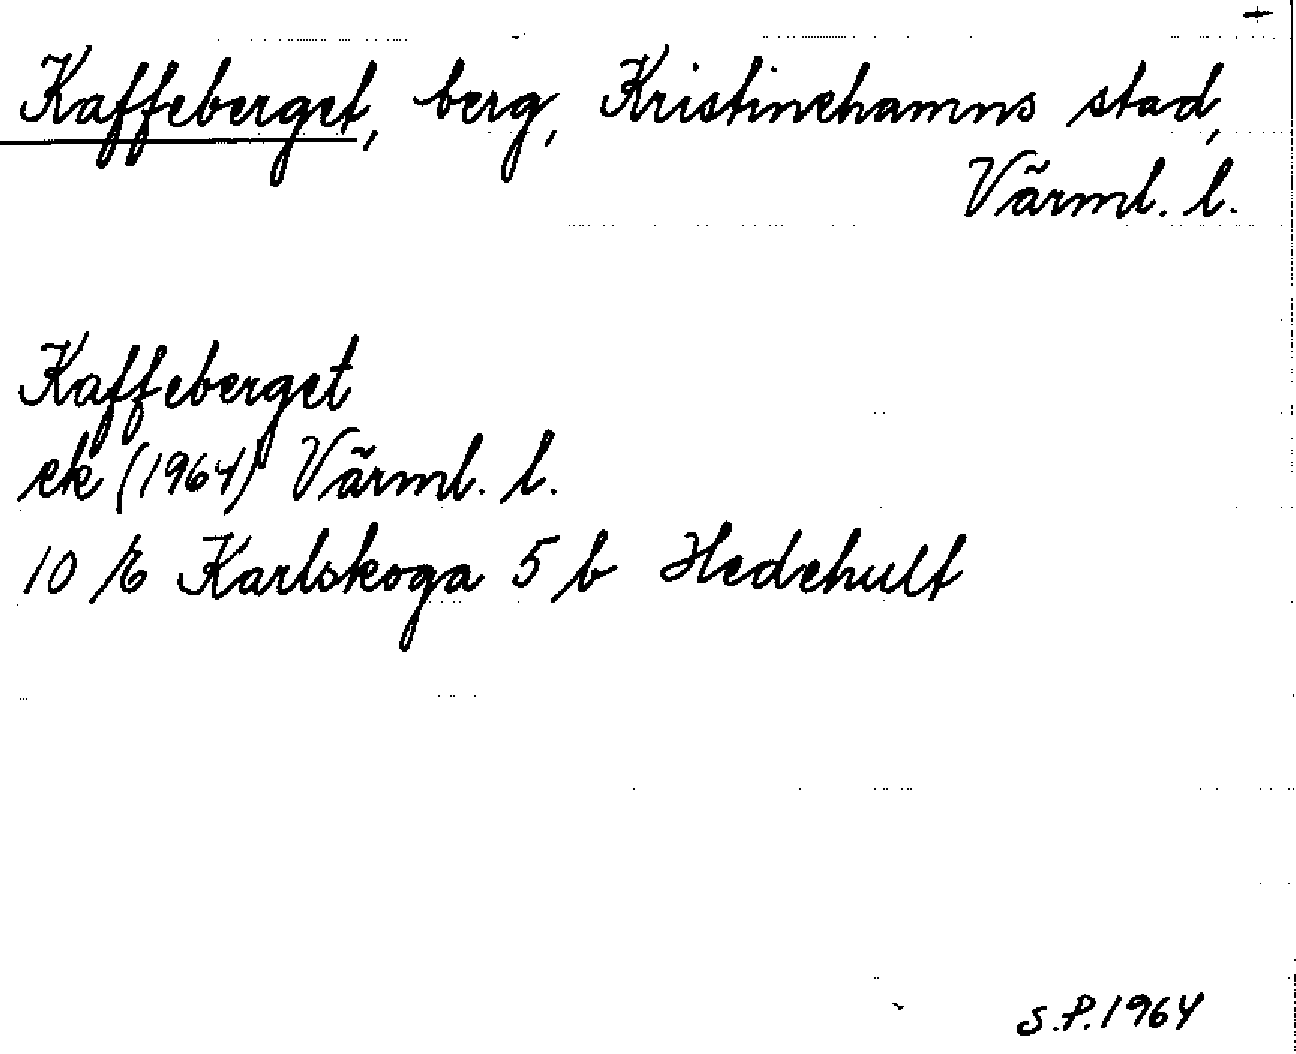 Kaffeberget, berg, Kristinehamns stad,
Värml. l.
Kaffeberget
ek (1964) Värml. l.
10 E Karlskoga 5 b Hedehult
S.P. 1964